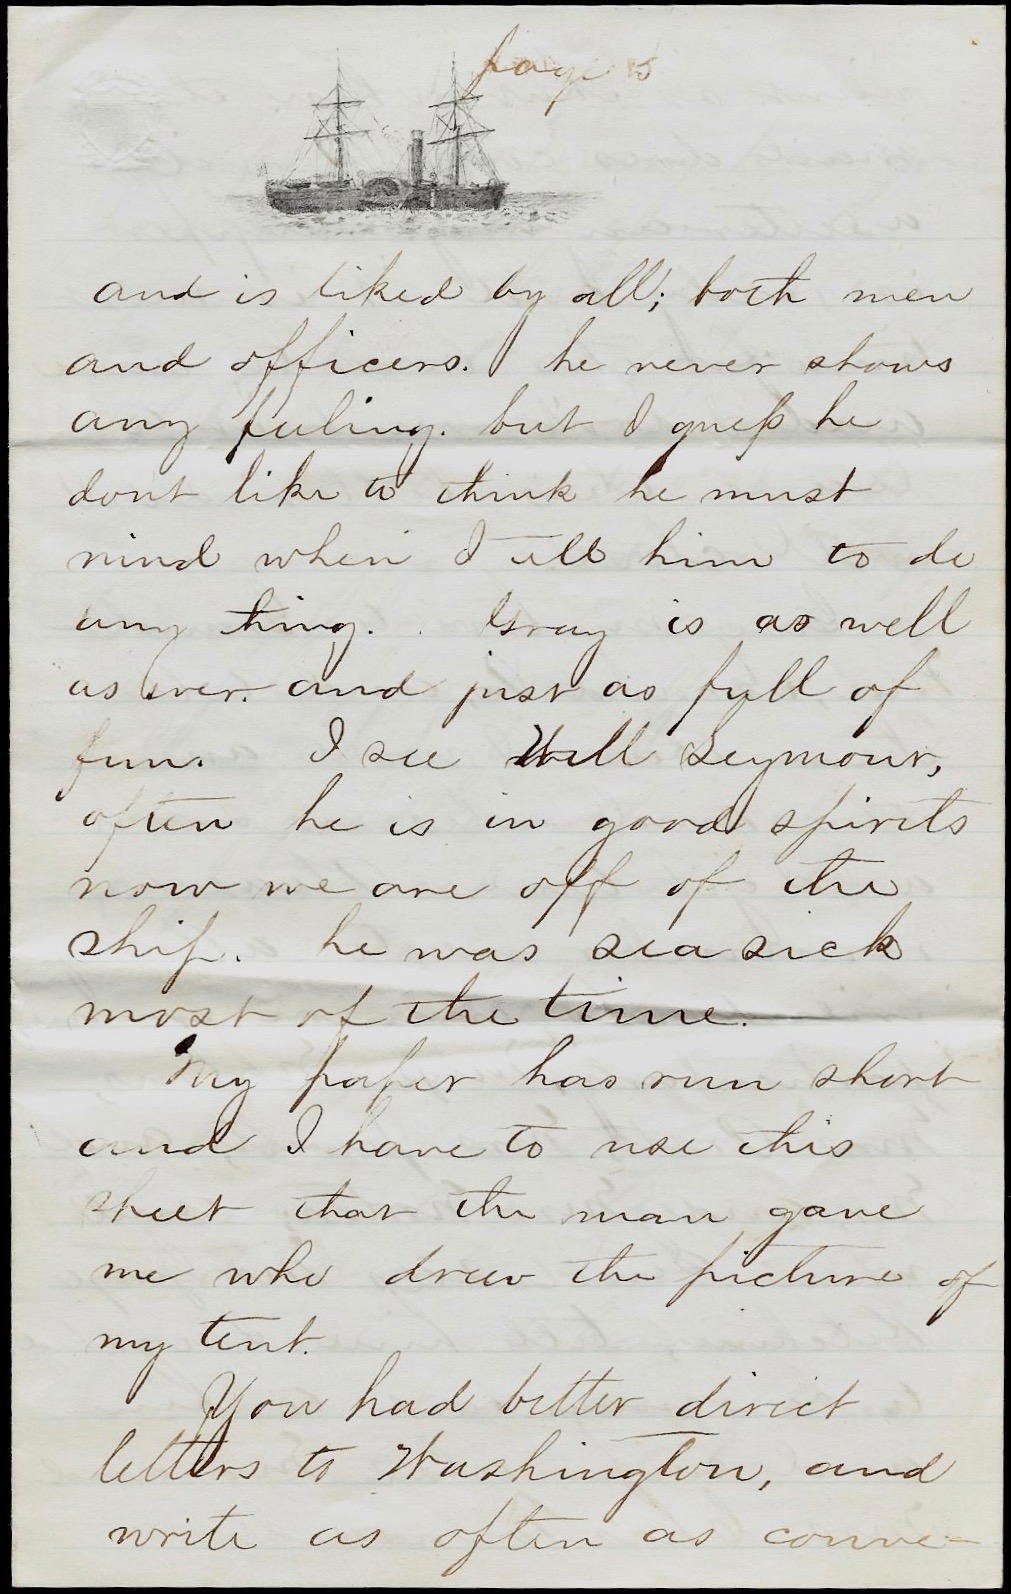 page 5
and is liked by all; both men
and officers. he never shows
any feeling. but I guess he
dont like to think he must
mind when I tell him to do
any thing. Gray is as well
as ever. and just as full of
fun. I see Will Seymour,
often he is in good spirits
now we are off of the
ship. he was sea sick
most of the time.
My paper has run short
and I have to use this
sheet that the man gave
me who drew the picture of
my tent.
You had better direct
letters to Washington, and
write as often as conve-